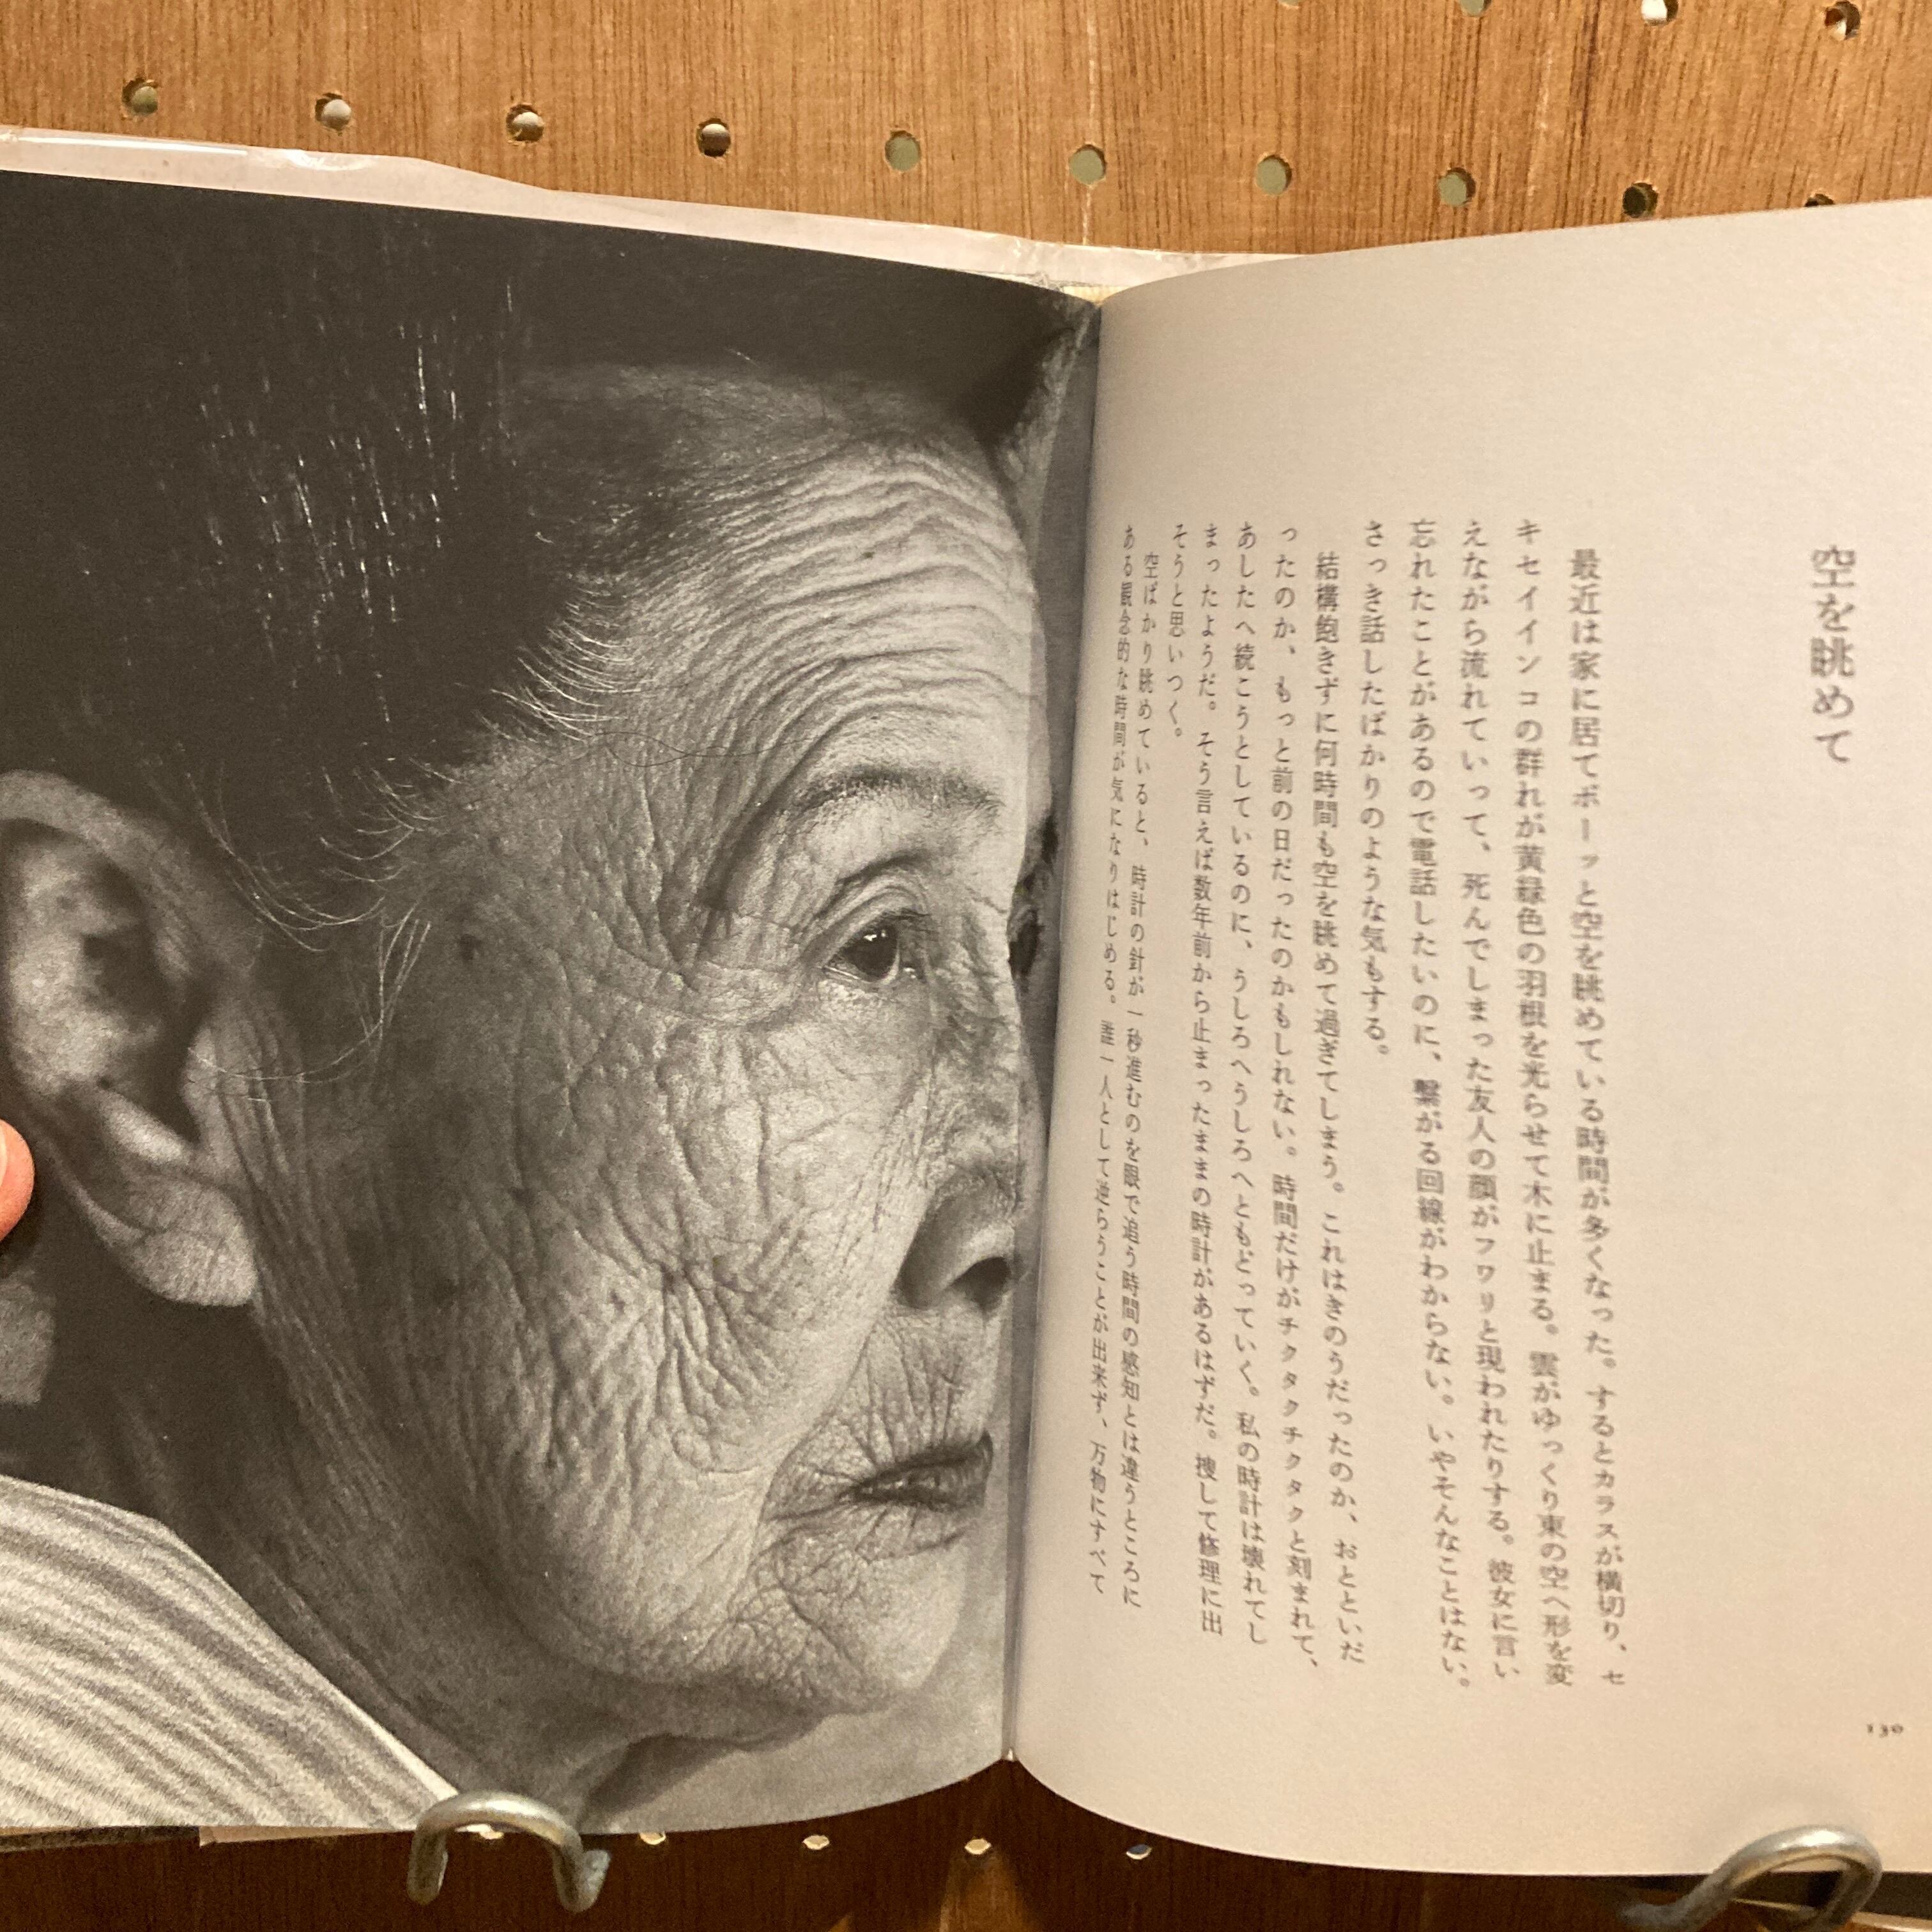 空を眺めて
最近は家に居てボーッと空を眺めている時間が多くなった。するとカラスが横切り、セ
キセイインコの群れが黄緑色の羽根を光らせて木に止まる。雲がゆっくり東の空へ形を変
えながら流れていって、死んでしまった友人の顔がフワリと現われたりする。彼女に言い
忘れたことがあるので電話したいのに、繋がる回線がわからない。いやそんなことはない。
さっき話したばかりのような気もする。
結構飽きずに何時間も空を眺めて過ぎてしまう。これはきのうだったのか、おとといだ
ったのか、もっと前の日だったのかもしれない。時間だけがチクタクチクタクと刻まれて、
あしたへ続こうとしているのに、うしろへうしろへともどっていく。私の時計は壊れてし
まったようだ。そう言えば数年前から止まったままの時計があるはずだ。捜して修理に出
そうと思いつく。
空ばかり眺めていると、時計の針が一秒進むのを眼で追う時間の感知とは違うところに
ある観念的な時間が気になりはじめる。誰一人として逆らうことが出来ず、万物にすべて
130